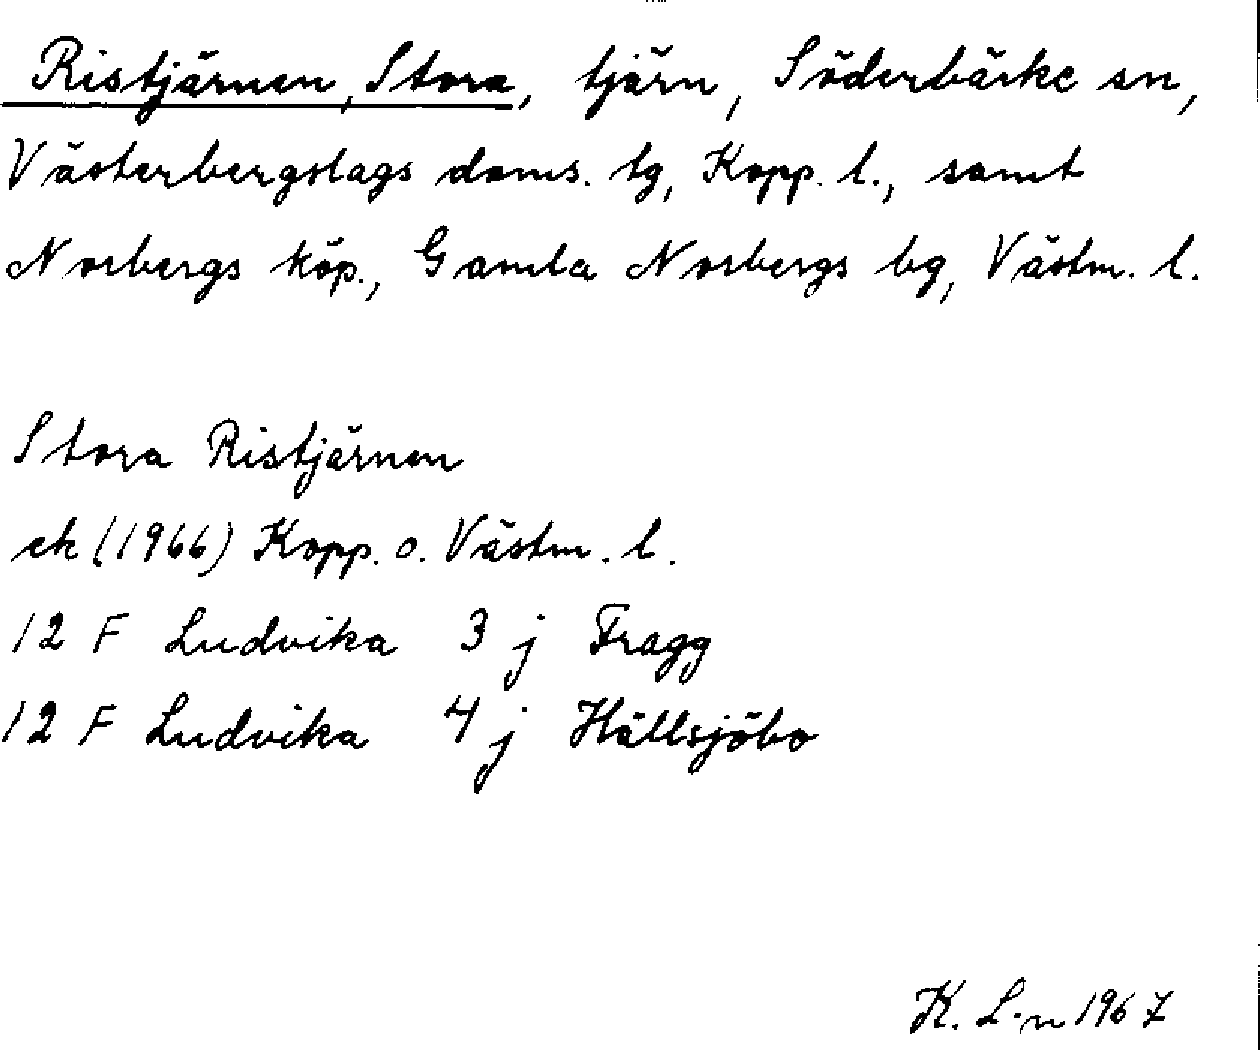 Ristjärnen, Stora, tjärn, Söderbärke sn,
Västerbergslags doms. tg, Kopp. l., samt
Norbergs köp., Gamla Norbergs bg, Västm. l.
Stora Ristjärnen
ek (1966) Kopp. o. Västm. l.
12 F Ludvika 3 j Fragg
12 F Ludvika 4 j Hällsjöbo
K. L-n 1967